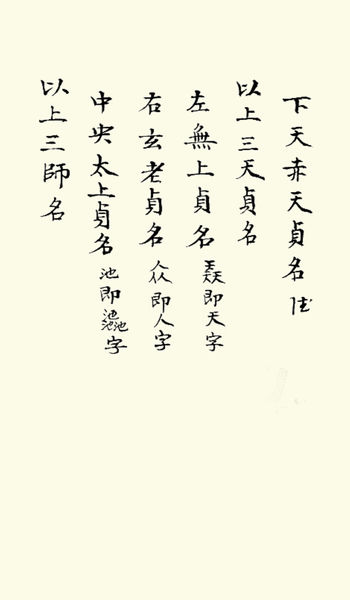 下天赤天貞名
以上三天貞名
左無上貞名 即天字
右玄老貞名 众即人字
中央太上貞名 池即 字
以上三師名